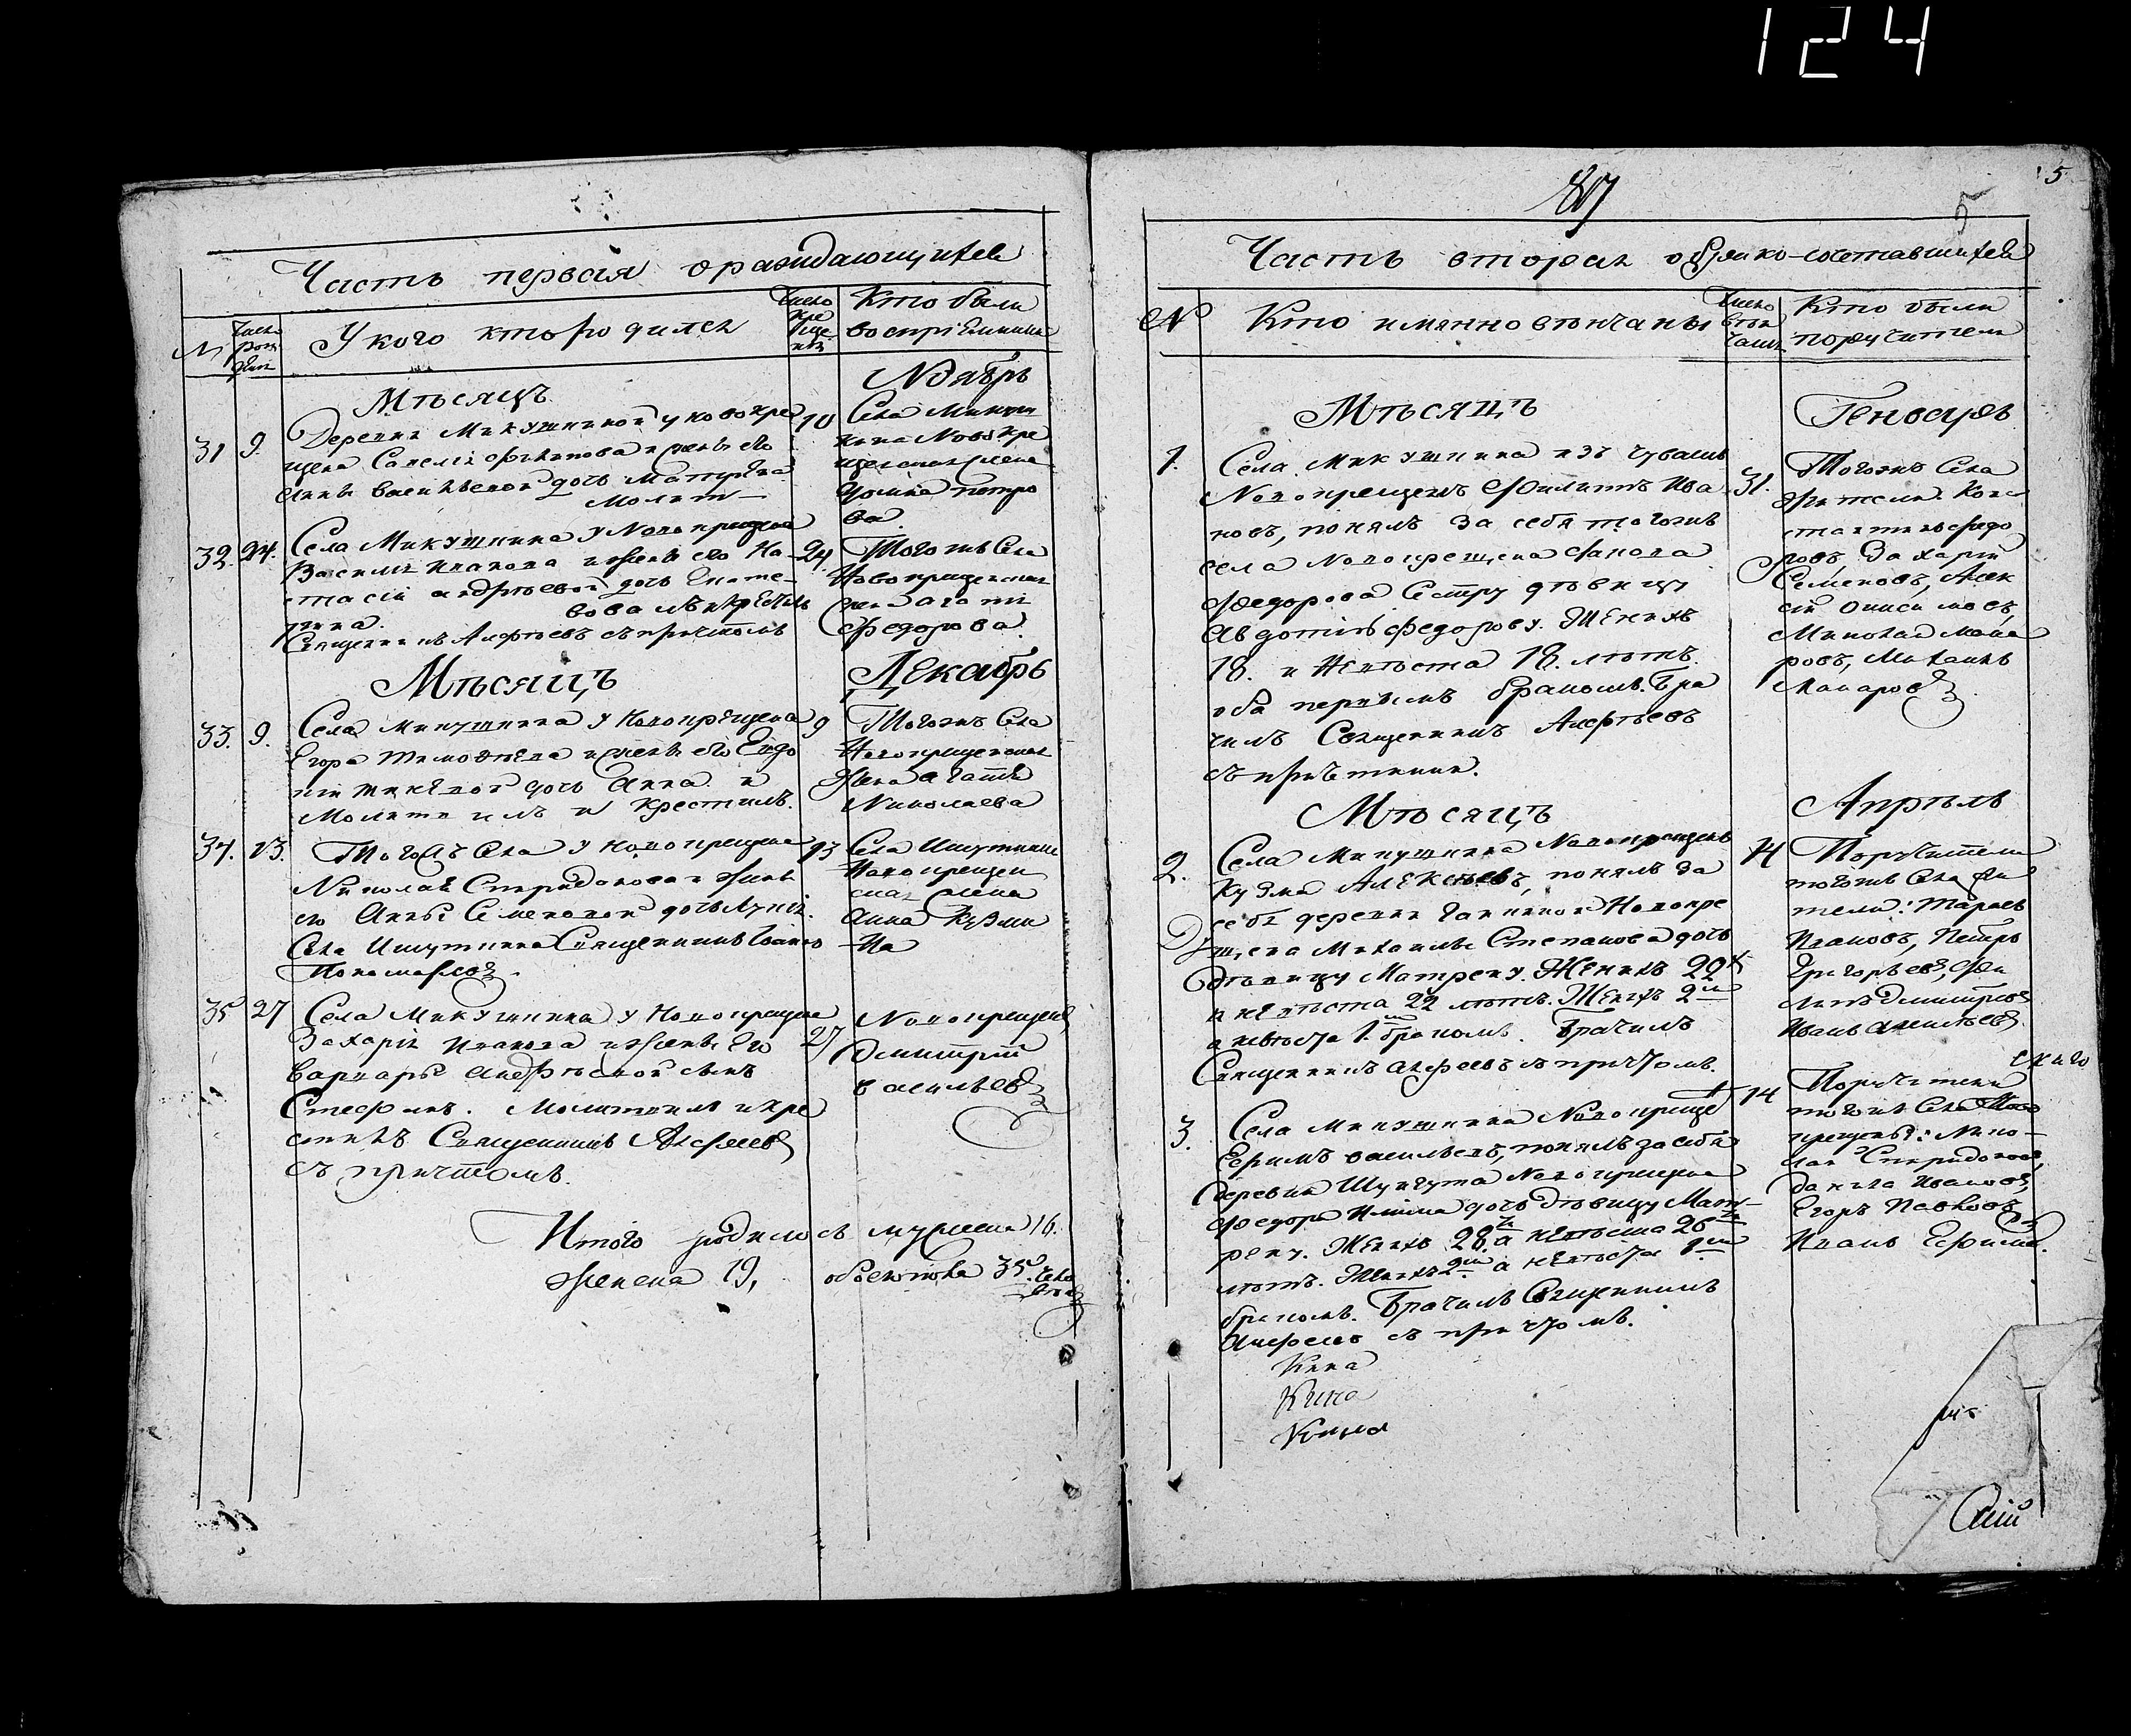 124
Часть первая о раждающихся
№
Число рождения
У кого кто родился
Число крещения
Кто были
воспріемники
Мѣсяцъ
Ноябрь
31
9.
Деревни Микушкиной у новокре
щена Савелія Филипова и жены его
Анны Васильевой дочь Матрена
Молит
10
Села Микуш
кина Новокре
щенская жена
Домна Петро
ва.
32.
24.
Села Микушкина у Новокрещена
Василья Иванова и жены его На
стасіи Андреевой дочь Екате-
рина.
Священникъ Алефьевъ съ причтомъ
24
Того жъ Села
Новокрещенская
Федорова.
Мѣсяцъ
Декабрь
33.
9.
Села Микушкина у Новокрещена
Егора Тимофеева и жены его Евдо
дочь Анна и
Молитвилъ и крестилъ.
9
Тогожъ Села
Новокрещенская
жена Агатія
Николаева
34.
13.
Тогожъ Села у Новокрещена
Николая Спиридонова и жены
его Анны Семеновой дочь
Села Ишуткина Священникъ Іваннъ
Пономаревъ.
13
Села Ишуткина
Новокрещен
ская жена
Анна Кузми
на
35
27
Села Микушкина у Новокрещена
Захарія Иванова и жены Его
Варвары Андреевой сынъ
Стефанъ. Молитвилъ и кре
стилъ Священникъ Алефеевъ
съ причтомъ.
27
Новокрещенъ
Димитрій
Васильевъ
Итого родилось мужеска 16.
женска 19, обоего пола 35. чело
векъ
87
5
5
Часть вторая о бракосочетавшихся
№
Кто имянно вѣнчаны
Число вѣнчанія
Кто были
поручители
Мѣсяцъ
Генварь
1.
Села Микушкина изъ чувашъ
Новокрещенъ Филипъ Ива
новъ, понялъ за себя тогожъ
села Новокрещена
Федорова Сестру дѣвицу
Авдотью Федорову. Женихъ
18. и Невѣста 18. лѣтъ.
оба первымъ бракомъ. Бра
чилъ Священникъ Алефьевъ
съ причтомъ.
31.
Тогожъ Села
жители. Кон
стантинъ Федо
ровъ, Захаръ
Семеновъ, Алек
сѣй Онисимовъ,
Николай Мака
ровъ, Михаилъ
Макаровъ
Мѣсяцъ
Апрѣль
2.
Села Микушкина Новокрещенъ
Кузма Алексѣевъ, понялъ за
себя деревни Ганькиной Новокре
щена Михаила Степанова дочь
дѣвицу Матрену. Женихъ 22х
и невѣста 22 лѣтъ. Женихъ 2мъ
а невѣста 1. бракомъ. Брачилъ
Священникъ Алефеевъ съ причтомъ.
14
Поручители
тогожъ Села жи
тели: Тарасъ
Ивановъ, Петръ
Григорьевъ, Фи
липъ Дмитріевъ
Иванъ Васильевъ
3.
Села Микушкина Новокреще
Ефимъ Васильевъ, понялъ за себя
Деревни Шунгута Новокрещена
Федора дочь дѣвицу Мат-
рену. Женихъ 28. а невѣста 26
лѣтъ. Женихъ 2мъ а невѣста 1мъ
бракомъ. Брачилъ Священникъ
Алефеевъ съ причтомъ.
14
Поручители
тогожъ Села
крещены: Нико-
лай Спиридоновъ,
Данила Ивановъ,
Егоръ Павловъ,
Иванъ Ефимовъ.